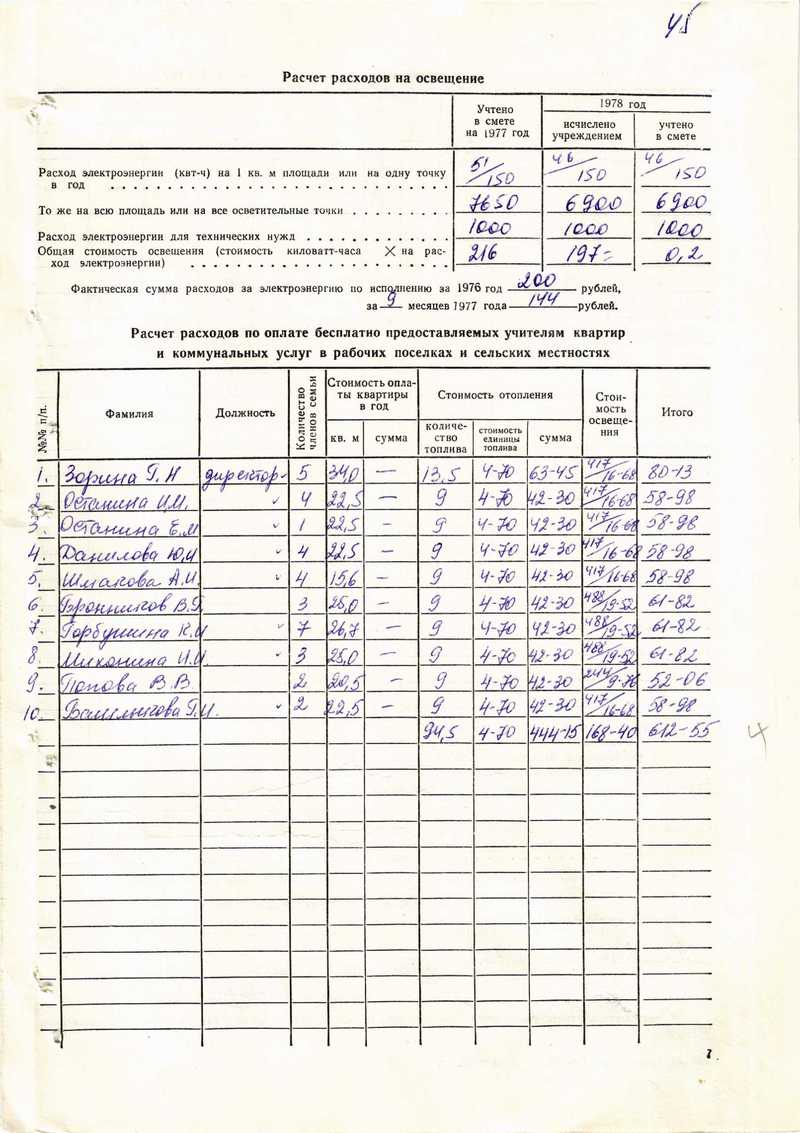 45
Расчет расходов на освещение
Учтено в смете на 1977 год
1978 год
исчислено учреждением
учтено в смете
Расход электроэнергии (квт-ч) на 1 кв. м площади или на одну точку в год 51/150 46/150 46/150
То же на всю площадь или на все осветительные точки 7650 6900 6900
Расход электроэнергии для технических нужд 1000 1000 1000
Общая стоимость освещения (стоимость киловатт-часа X на расход электроэнергии) 216 197= 0,2
Фактическая сумма расходов за электроэнергию по исполнению за 1976 год 200 рублей,
за 9 месяцев 1977 года 144 рублей.
Расчет расходов по оплате бесплатно предоставляемых учителям квартир
и коммунальных услуг в рабочих поселках и сельских местностях
№№ п/п.
Фамилия
Должность
Количество членов семьи
Стоимость оплаты квартиры в год
кв. м
сумма
Стоимость отопления
количество топлива
стоимость единицы топлива
сумма
Стоимость освещения
Итого
1. Зорина Г. Н директор 5 34,0 — 13,5 4-70 63-45 417/16-68 80-13
2. Останина И.М. 4 22,5 — 9 4-70 42-30 417/16-68 58-98
3. Останина Е.М 1 22,5 - 9 4-70 42-30 417/16-68 58-98
4. Данилова Ю.И 4 22,5 — 9 4-70 42-30 417/16-68 58-98
5. Шмакова А.И. 4 15,6 — 9 4-70 42-30 417/16-68 58-98
6. Бронников В.Г. 3 25,0 — 9 4-70 42-30 488/19-52 61-82
7. Горбушина К.И 7 26,7 — 9 4-70 42-30 488/19-52 61-82
8. Миконина И.И 3 25,0 — 9 4-70 42-30 488/19-52 61-82
9. Попова В. В 2 20,5 — 9 4-70 42-30 244/9-76 52-06
10. Г.И. 2 22,5 — 9 4-70 42-30 417/16-68 58-98
94,5 4-70 444-15 168-40 612-55
4
7